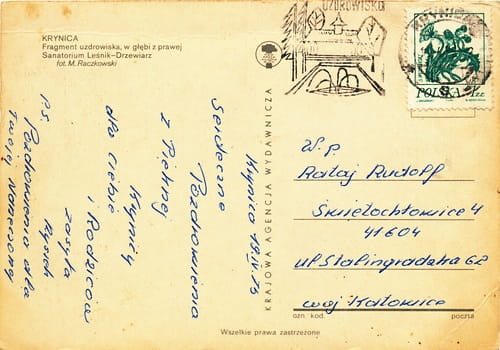 KRYNICA
Fragment uzdrowiska, w głębi z prawej
Sanatorium Leśnik-Drzewiarz
fot. M. Raczkowski
UZDROWISKO
KRYNICA
POLSKA
1 ZŁ
KRAJOWA AGENCJA WYDAWNICZA
Krynica
Serdeczne
Pozdrowienia
z Pięknej
Krynicy
dla Ciebie
i Rodziców
zasyła
Rysiek
Ps.
Pozdrowienia dla
Twojej
W.P.
Rataj Rudolf
Świętochłowice 4
41604
ul Stalingradzka 62
woj Katowice
ozn. kod.
poczta
Wszelkie prawa zastrzeżone